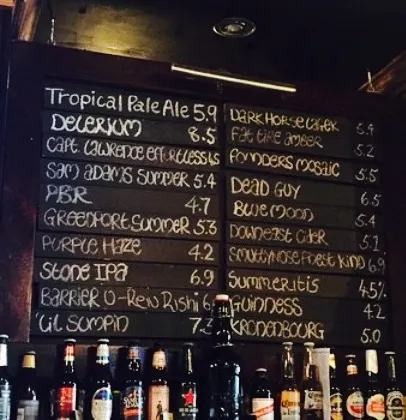 Tropical Pale Ale 5.9
DELERIUM 8.5
CAPT. LAWRENCE EFFORTLESS 4.5
SAM ADAMS SUMMER 5.4
PBR 4.7
GREENPORT SUMMER 5.3
PURPLE HAZE 4.2
STONE IPA 6.9
BARRIER O-Rew Rishi 6
'Lil SUMPIN 7.3
DARK HORSE LAGER 5.9
FAT TIRE AMBER 5.2
FOUNDERS MOSAIC 5.5
DEAD GUY 6.5
BLUE MOON 5.4
DOWNEAST CIDER 5.1
SMUTTYNOSE FINEST KIND 6.9
Summeritis 4.5%
GUINNESS 4.2
KRONENBOURG 5.0